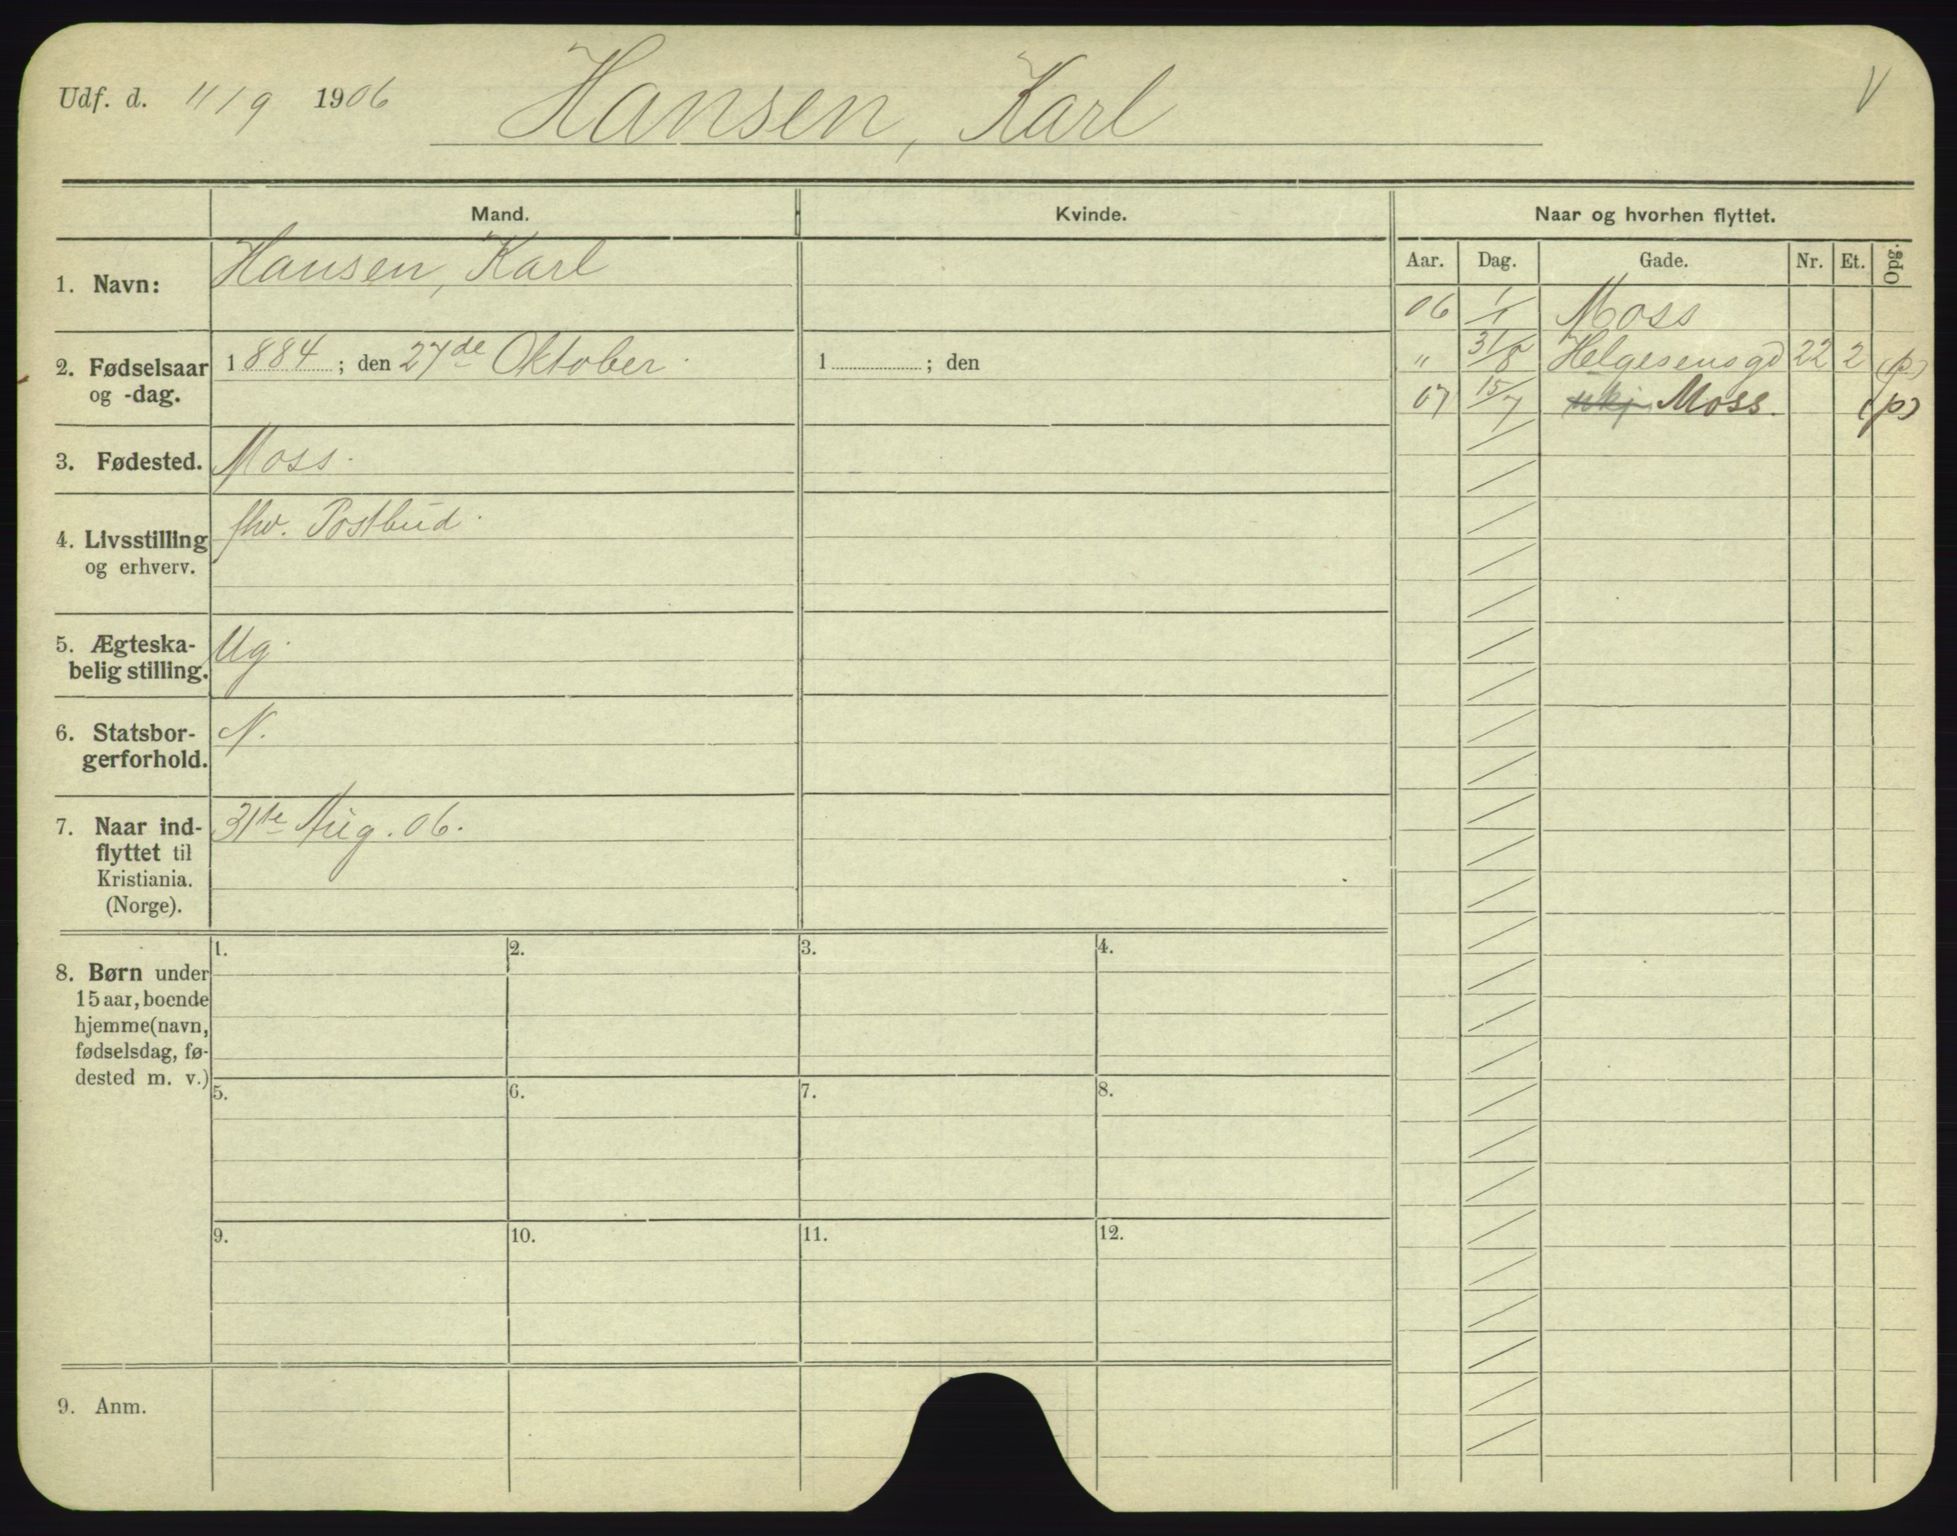 Udf. d. 11/9 1906 Hansen, Karl V
Mand. Kvinde. Naar og hvorhen flyttet.
Aar. Dag. Gade. Nr. Et. Opg.
1. Navn: Hansen, Karl
06 1/1 Moss
2. Fødselsaar og -dag. 1884; den 27de Oktober. 1 ; den
" 31/8 Helgesensgd 22 2 (p)
07 15/7 ukj Moss. (p)
3. Fødested. Moss.
4. Livsstilling
og erhverv.
fhv. Postbud.
5. Ægteska-
belig stilling.
Ug.
6. Statsbor-
gerforhold.
N.
7. Naar ind-
flyttet til
Kristiania.
(Norge).
31te Aug. 06.
8. Børn under
15 aar, boende
hjemme (navn,
fødselsdag, fø-
dested m. v.)
1. 2. 3. 4.
5. 6. 7. 8.
9. 10. 11. 12.
9. Anm.